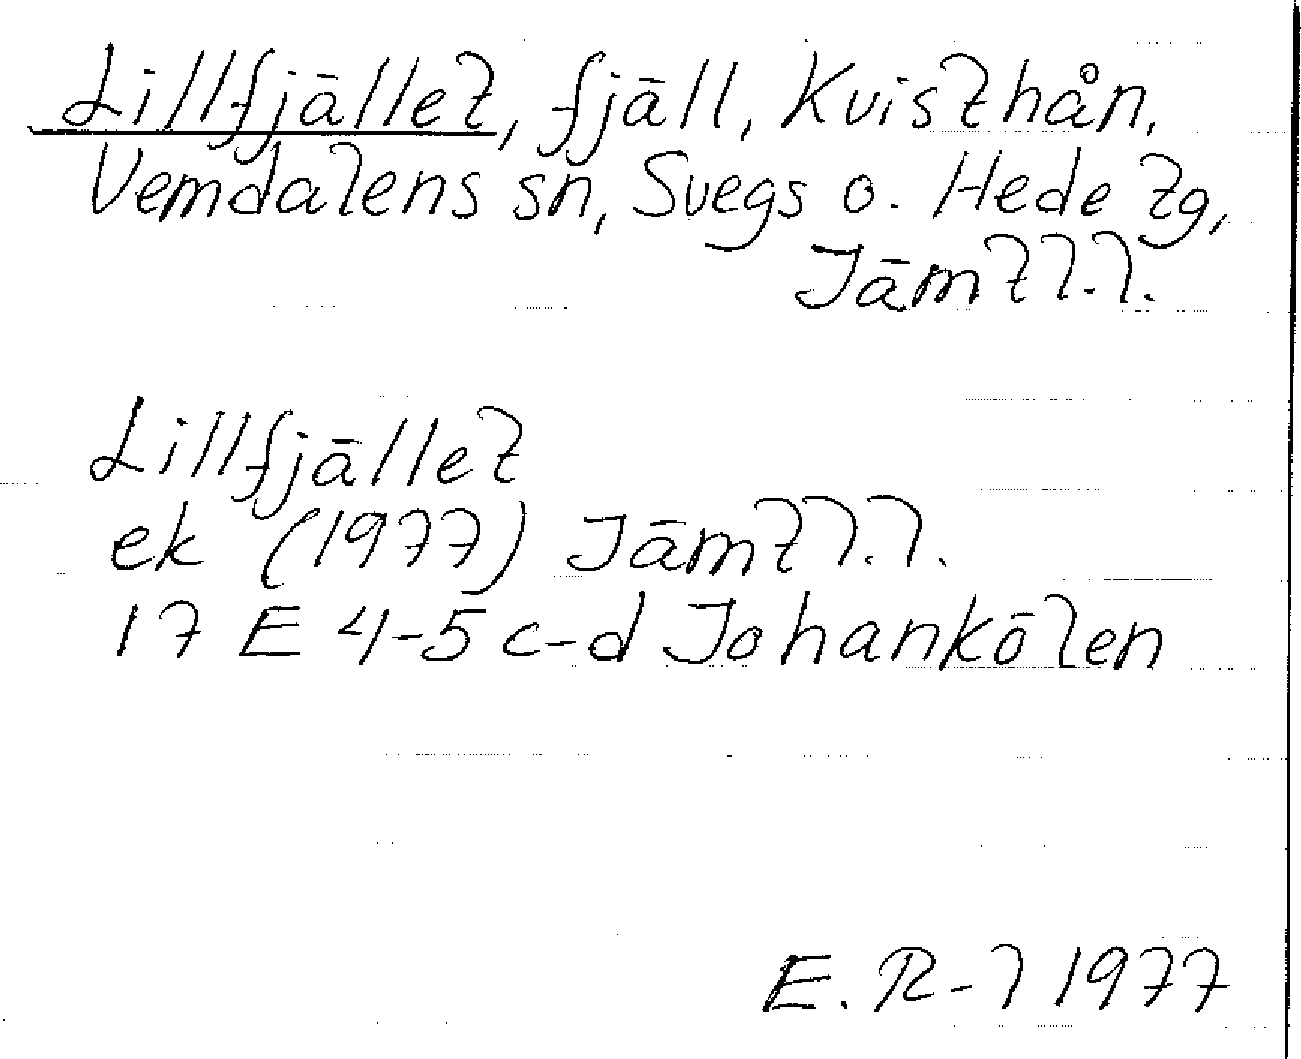 Lillfjället, fjäll, Kvisthån,
Vemdalens sn, Svegs o. Hede tg,
Jämtl.l.
Lillfjället
ek (1977) Jämtl.l.
17 E 4-5 c-d Johankölen
E. R-l 1977